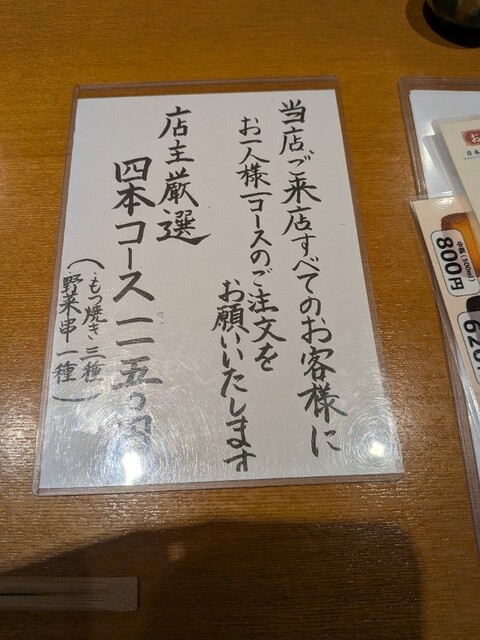 当店、ご来店すべてのお客様に
お一人様一コースのご注文を
お願いいたします
店主厳選
四本コース 一一五〇円
(もつ焼き三種
野菜串一種)
中瓶(500ml)
800円
620